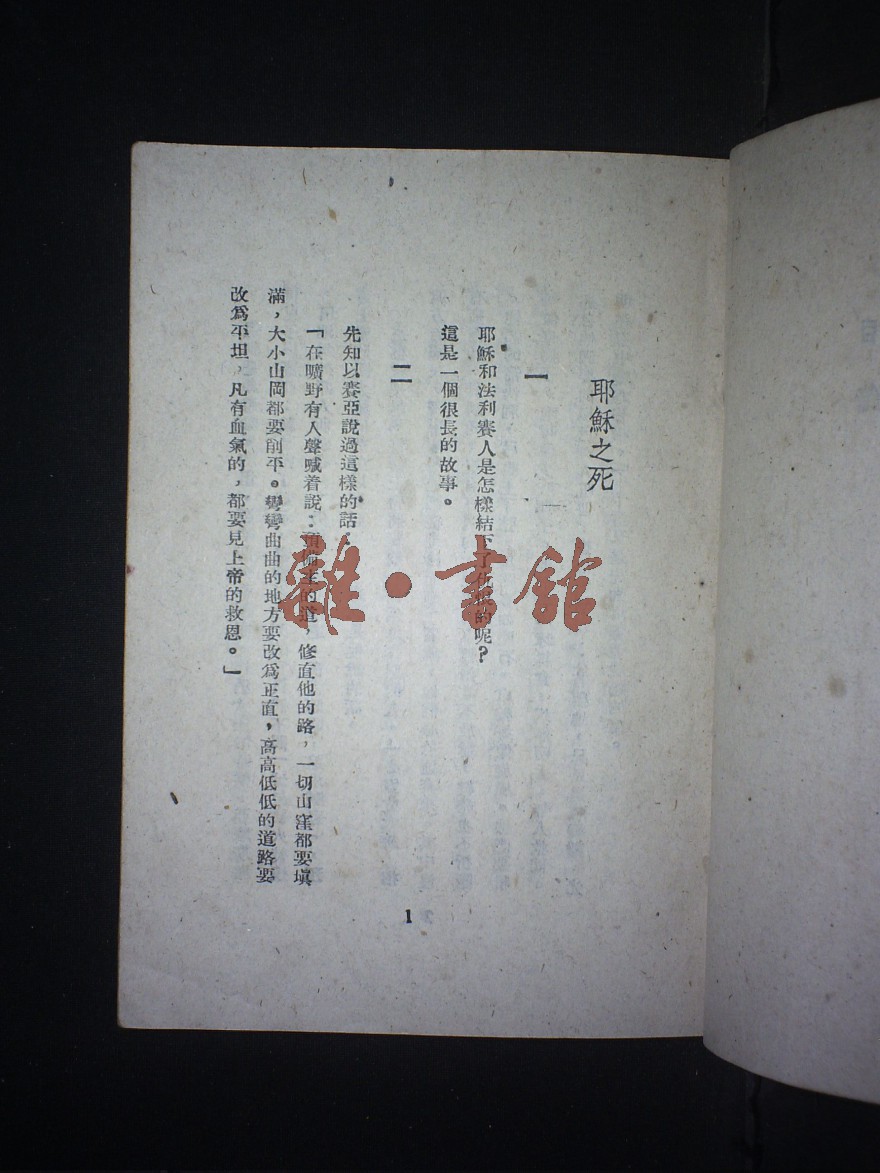 耶穌之死
一
耶穌和法利賽人是怎樣結下了的呢？
這是一個很長的故事。
二
先知以賽亞說過這樣的話
「在曠野有人聲喊着說：主的道，修直他的路，一切山窪都要填
滿，大小山岡都要削平。彎彎曲曲的地方要改爲正直，高高低低的道路要
改爲平坦，凡有血氣的，都要見上帝的救恩。」
1
雜・書館